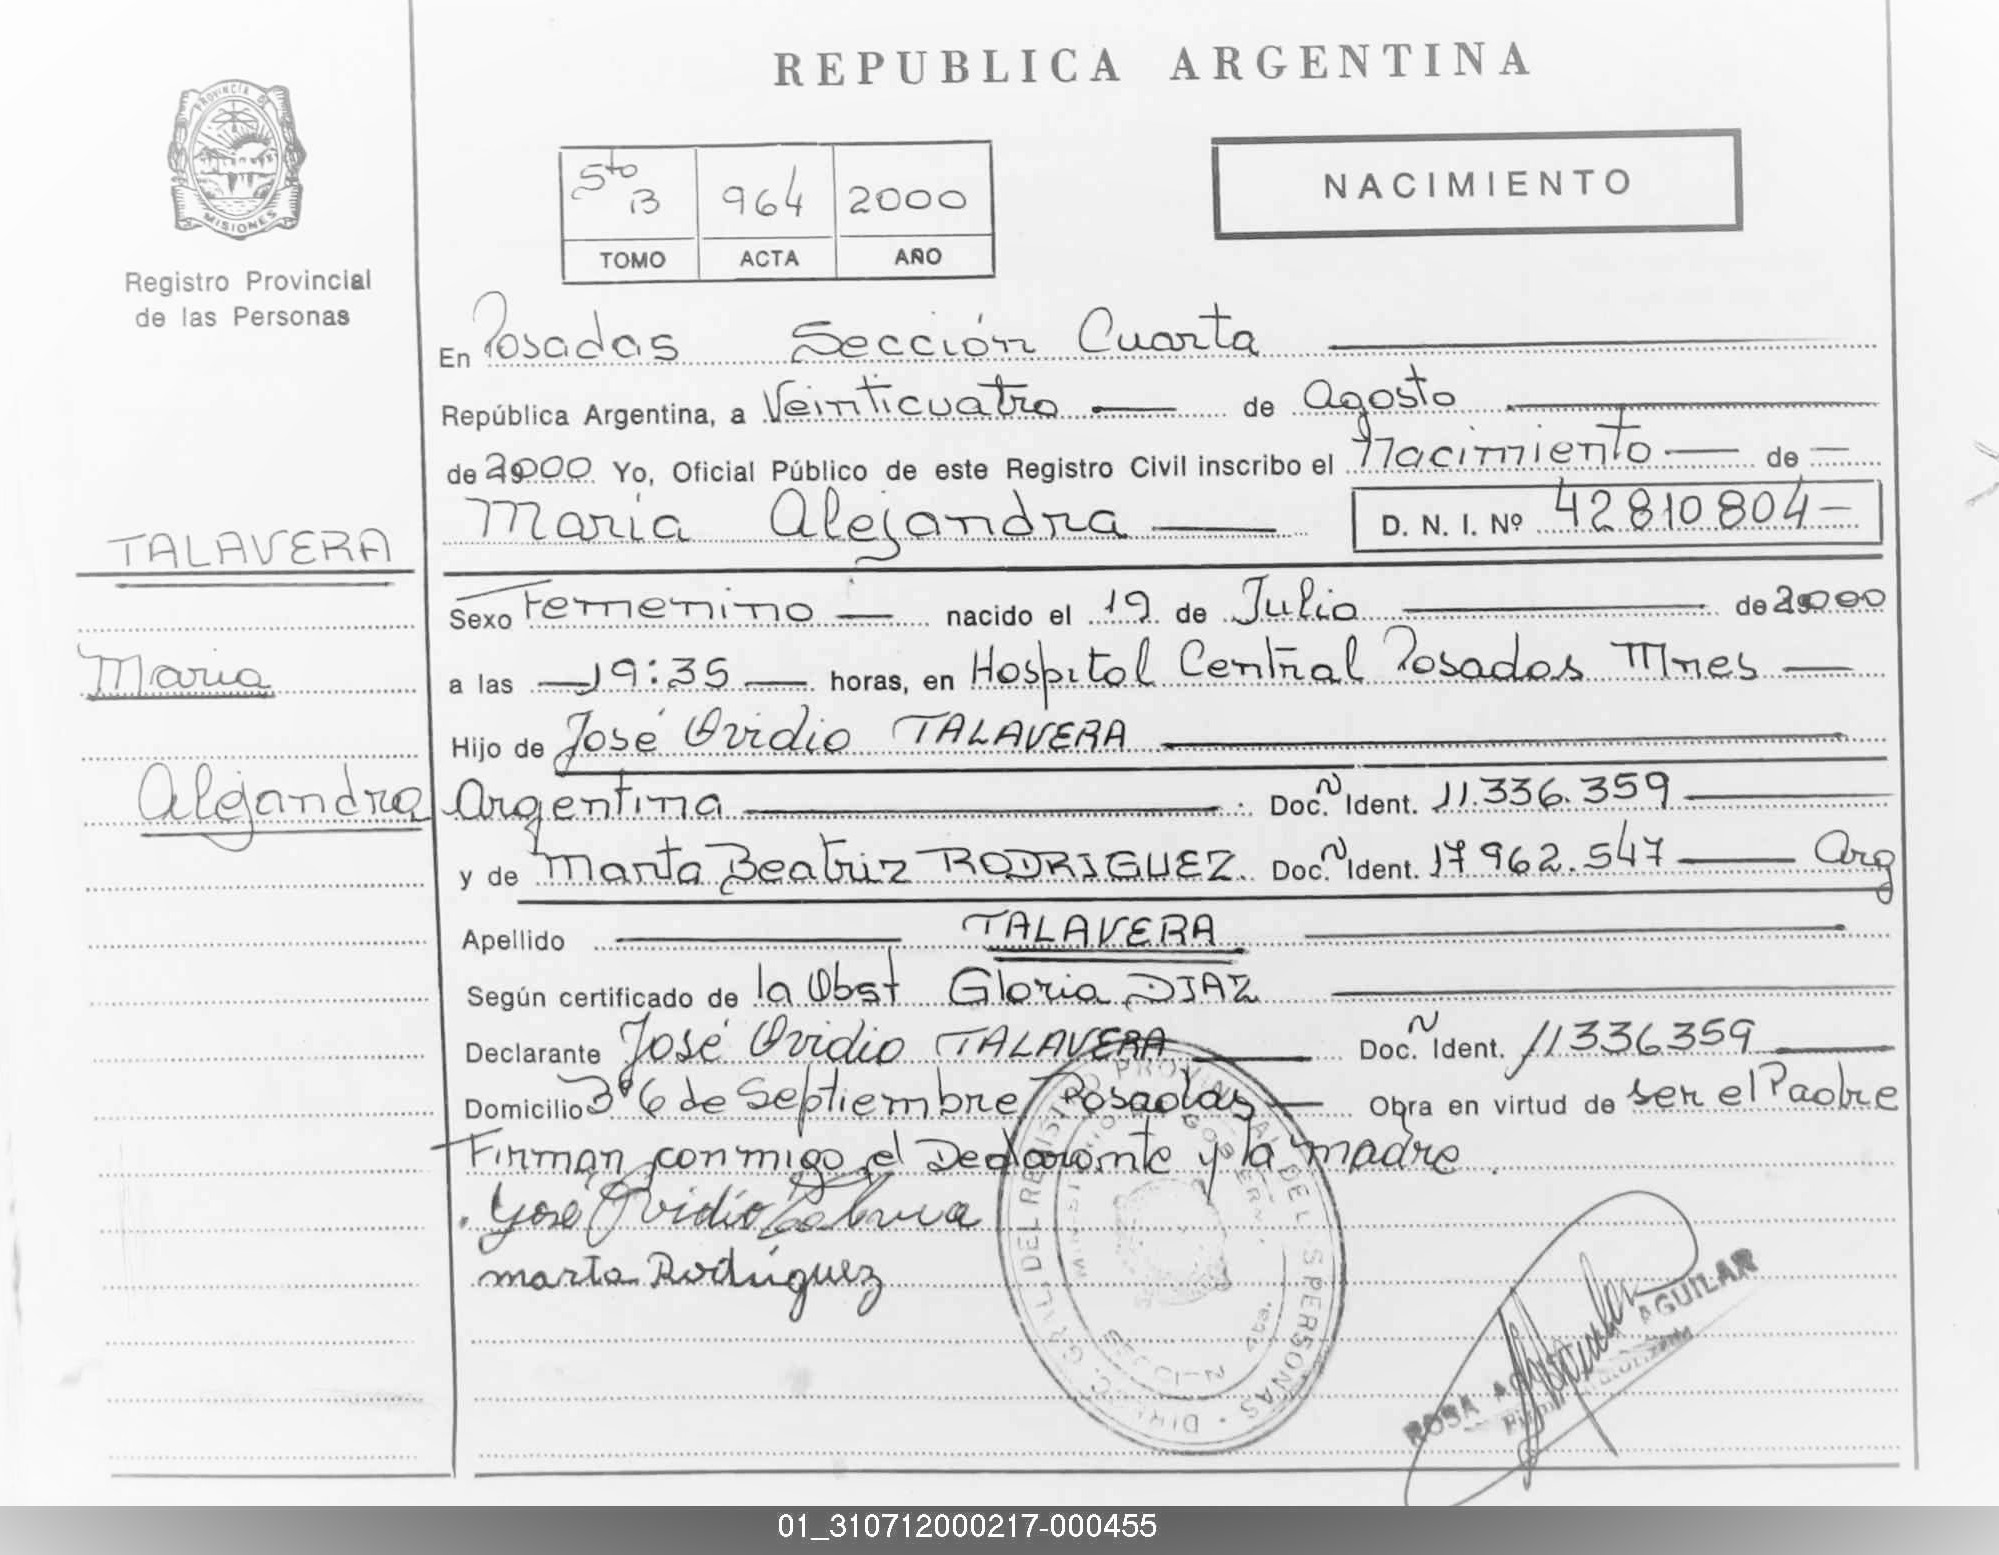 REPUBLICA ARGENTINA
PROVINCIA DE
MISIONES
Registro Provincial
de las Personas
5to B 964 2000
TOMO ACTA AÑO
NACIMIENTO
En Posadas Sección Cuarta
República Argentina, a Veinticuatro de Agosto
de 2000 Yo, Oficial Público de este Registro Civil inscribo el Nacimiento de
Maria Alejandra D. N. I. Nº 42810804
TALAVERA
Maria
Alejandra
Sexo Femenino nacido el 19 de Julio de 2000
a las 19:35 horas, en Hospital Central Posadas Mnes
Hijo de José Ovidio TALAVERA
Argentina Doc. N Ident. 11.336.359
y de Marta Beatriz RODRIGUEZ Doc. N Ident. 17962.547 Arg
Apellido TALAVERA
Según certificado de la Obst Gloria DIAZ
Declarante José Ovidio TALAVERA Doc. N Ident. 11336359
Domicilio 3º 6 de Septiembre Posadas Obra en virtud de ser el Padre
Firman conmigo el Declarante y la madre.
José Ovidio Talavera
marta Rodriguez
DIREC. GRAL. DEL REGISTRO PROVINCIAL DE LAS PERSONAS
ROSA AGUILAR
01_310712000217-000455